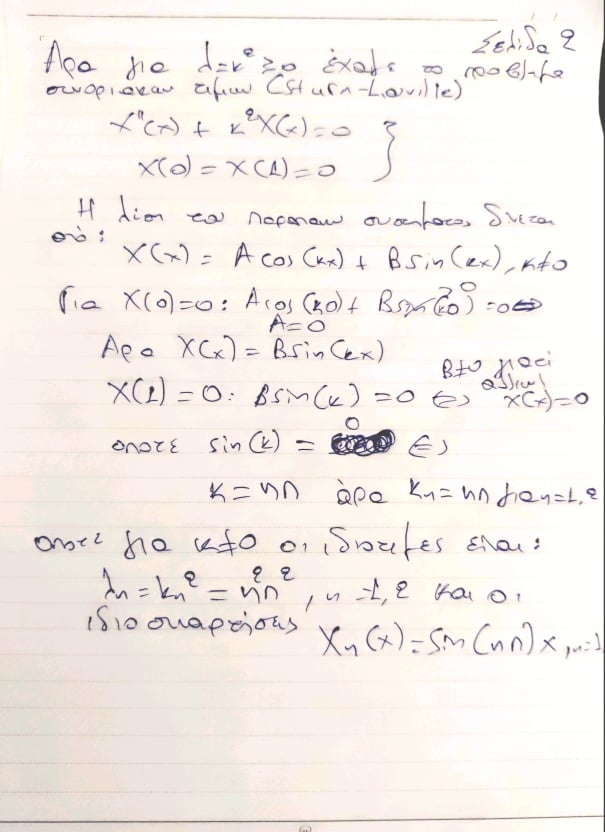 Σελίδα 2
Άρα για λ=κ² ≥0 έχουμε το πρόβλημα
συνοριακών τιμών (Sturn-Louville)
X''(x) + k²X(x)=0
X(0) = X(1)=0
Η λύση του παραπάνω συστήματος δίνεται
από:
X(x) = A cos(kx) + B sin(kx), k≠0
Για X(0)=0: A cos(k0) + B sin(k0) =0 ⇔
0
A=0
Άρα X(x) = B sin(kx)
B≠0 γιατί
X(1) = 0: B sin(k) = 0 ⇔ αλλιώς X(x)=0
οποτε sin(k) = 0 ⇔
k = nπ άρα kn = nπ για n=1,2
οποτε για k≠0 οι ιδιοτιμές είναι:
λn = kn² = n²π², n=1,2 και οι
ιδιοσυναρτήσεις Xn(x) = sin(nπ)x, n=1